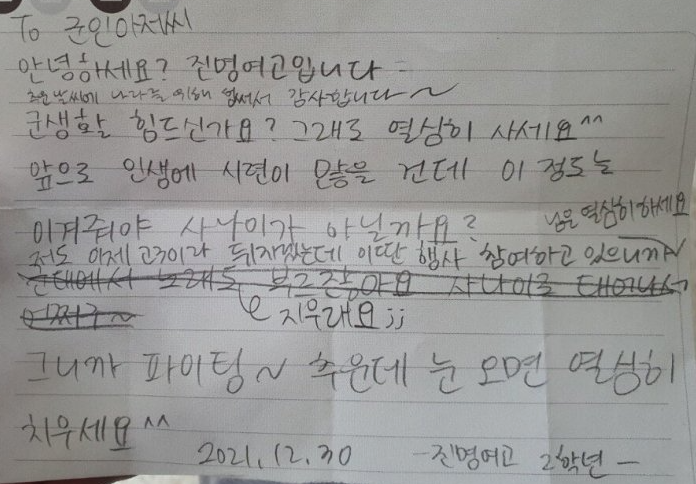 To 군인아저씨
안녕하세요? 진명여고입니다
추운 날씨에 나라를 위해 힘써서 감사합니다~
군생활 힘드신가요? 그래도 열심히 사세요^^
앞으로 인생에 시련이 많을 건데 이 정도는
이겨줘야 사나이가 아닐까요?
저도 이제 고3이라 뒤지겠는데 이딴 행사 참여하고 있으니까
님은 열심히 하세요
군대에서 노래도 부르잖아요 사나이로 태어나서
어쩌구~
지우래요;;
그니까 파이팅~ 추운데 눈 오면 열심히
치우세요^^
2021.12.30 -진명여고 2학년-